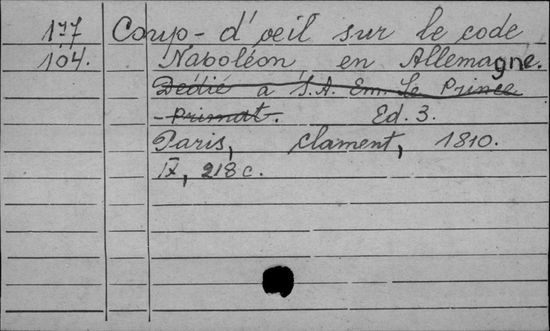 177 Coup-d'oeil sur le code
104. Napoléon en Allemagne.
Dédié à S.A. Em. Le Prince
-Primat. Ed. 3.
Paris, clament, 1810.
IX, 218 c.